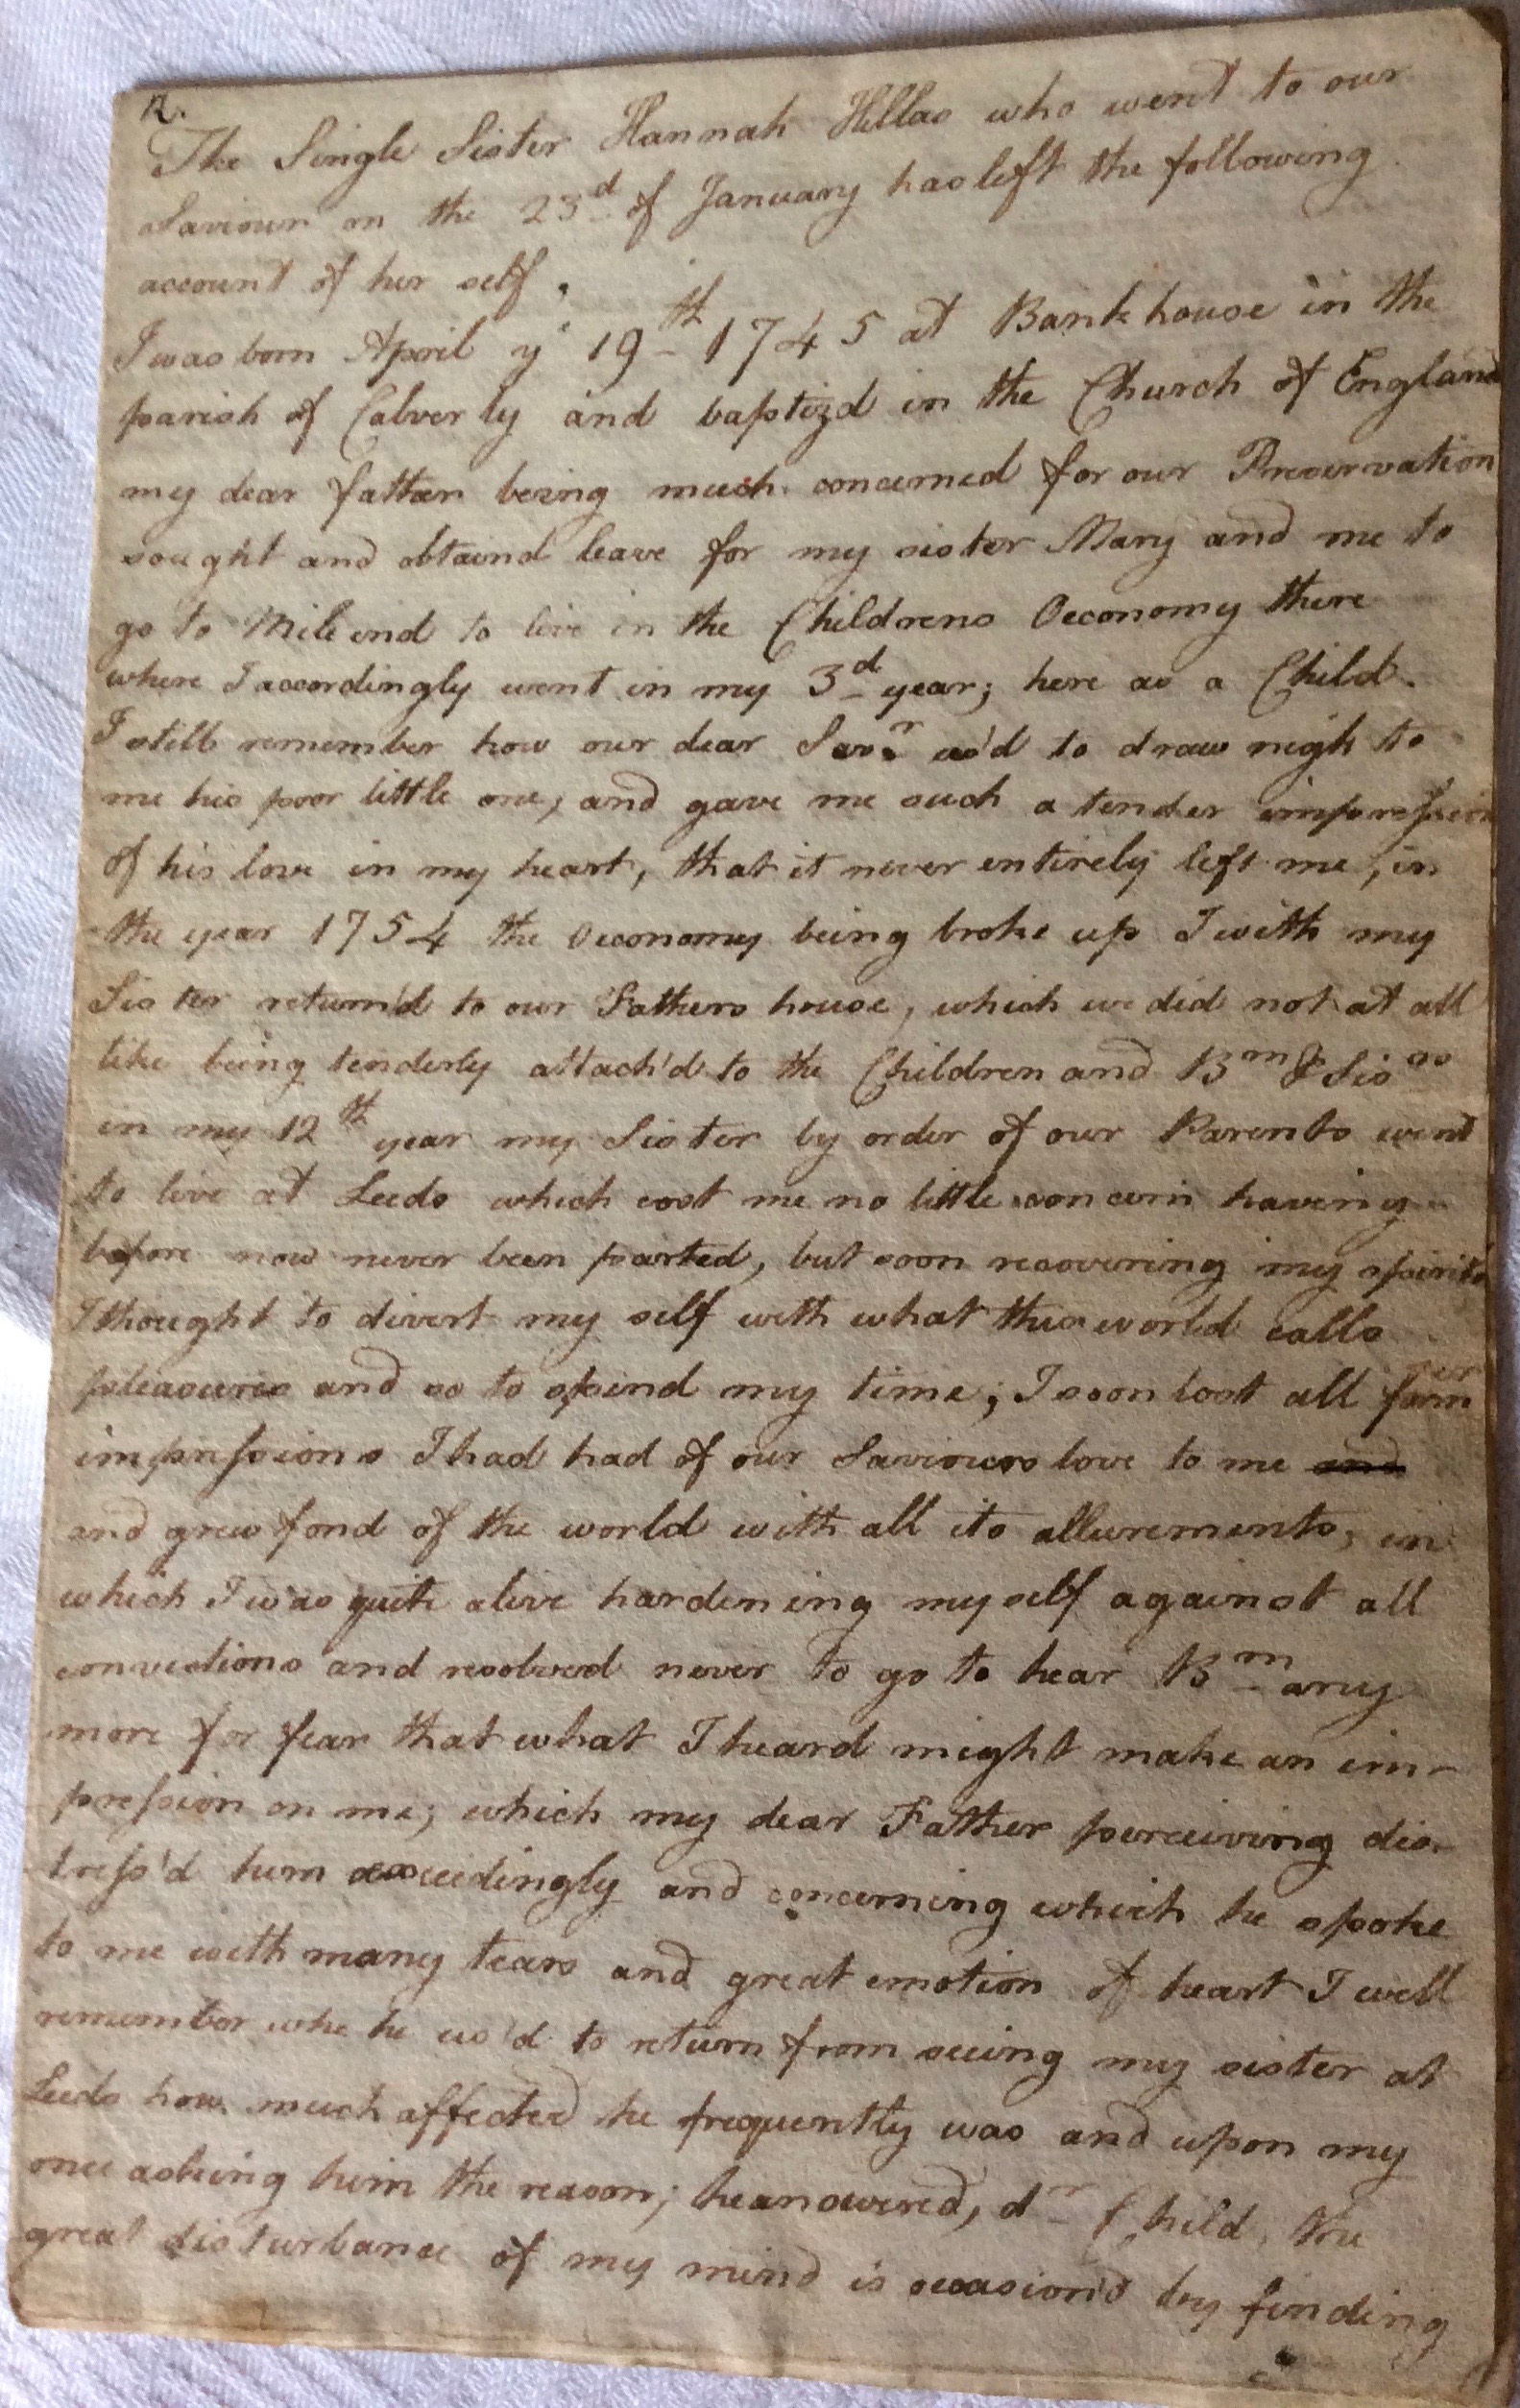 12.
The Single Sister Hannah Hillas who went to our
Saviour on the 23d of January has left the following
account of her self.
I was born April ye 19th 1745 at Bankhouse in the
parish of Calverly and baptizd in the Church of England
my dear father being much concerned for our Preservation
sought and obtaind leave for my sister Mary and me to
go to Mile end to live in the Childrens Oeconomy there
where I accordingly went in my 3d year; here as a Child
I still remember how our dear Savr us'd to draw nigh to
me his poor little one, and gave me such a tender impression
of his love in my heart, that it never entirely left me, in
the year 1754 the Oeconomy being broke up I with my
Sister return'd to our Fathers house, which we did not at all
like being tenderly attach'd to the Children and Brn & Sisrs
in my 12th year my Sister by order of our Parents went
to live at Leeds which cost me no little concern having
before now never been parted, but soon recovering my spirits
I thought to divert my self with what this world calls
pleasures and so to spend my time; I soon lost all former
impressions I had had of our Saviours love to me and
and grew fond of the world with all its allurements, in
which I was quite alive hardening myself against all
convictions and resolved never to go to hear Brn any
more for fear that what I heard might make an im-
pression on me; which my dear Father perceiving dis-
tress'd him exceedingly and concerning which he spoke
to me with many tears and great emotion of heart I well
remember whe he us'd to return from seeing my sister at
Leeds how much affected he frequently was and upon my
once asking him the reason; he answered, dr Child, the
great disturbance of my mind is occasion'd by finding